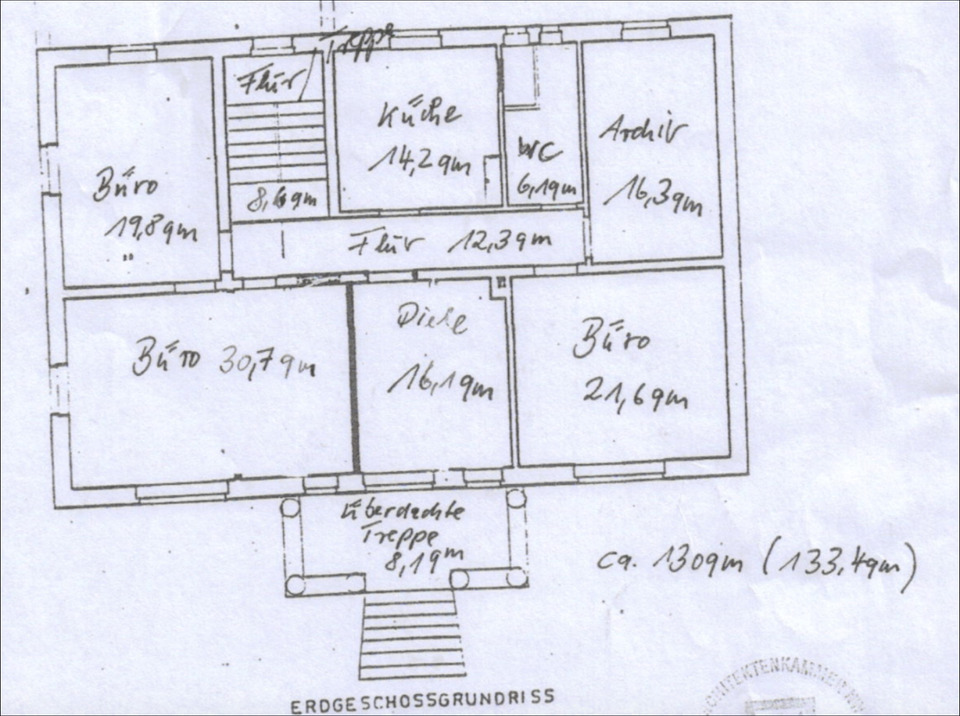 Treppe
Flur
8,6qm
Küche
14,2qm
WC
6,1qm
Archiv
16,3qm
Büro
19,8qm
Flur 12,3qm
Büro 30,7qm
Diele
16,1qm
Büro
21,6qm
überdachte
Treppe
8,1qm
ca. 130qm (133,4qm)
ERDGESCHOSSGRUNDRISS